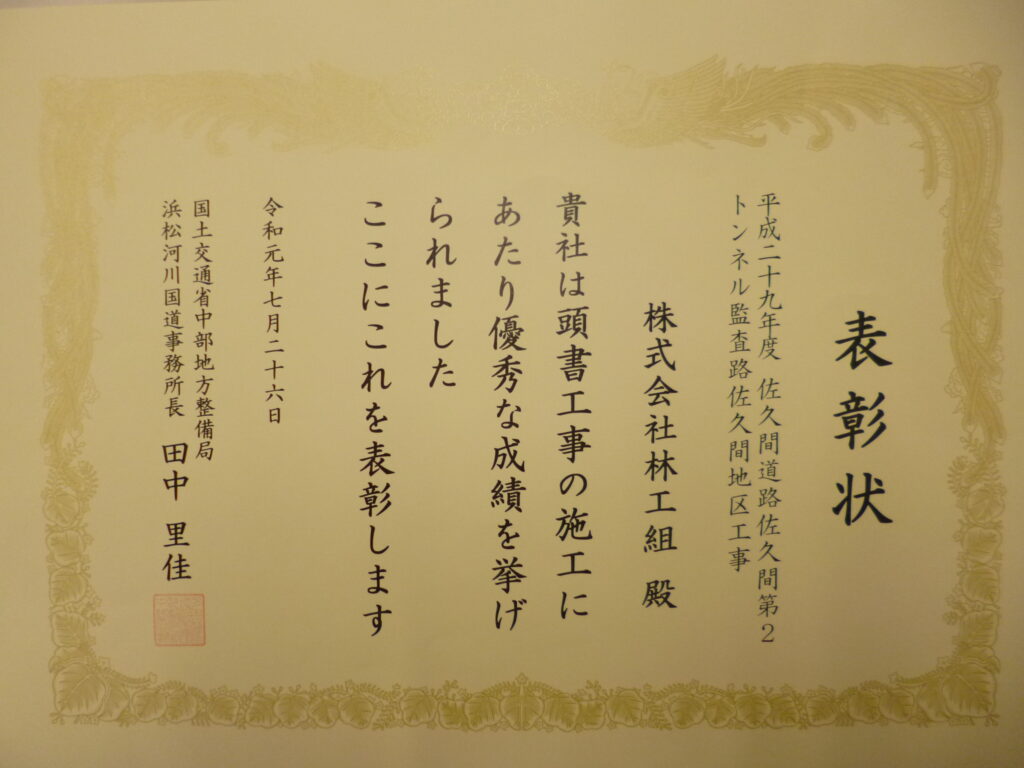 表彰状
平成二十九年度 佐久間道路佐久間第２
トンネル監査路佐久間地区工事
株式会社林工組 殿
貴社は頭書工事の施工に
あたり優秀な成績を挙げ
られました
ここにこれを表彰します
令和元年七月二十六日
国土交通省中部地方整備局
浜松河川国道事務所長 田中 里佳